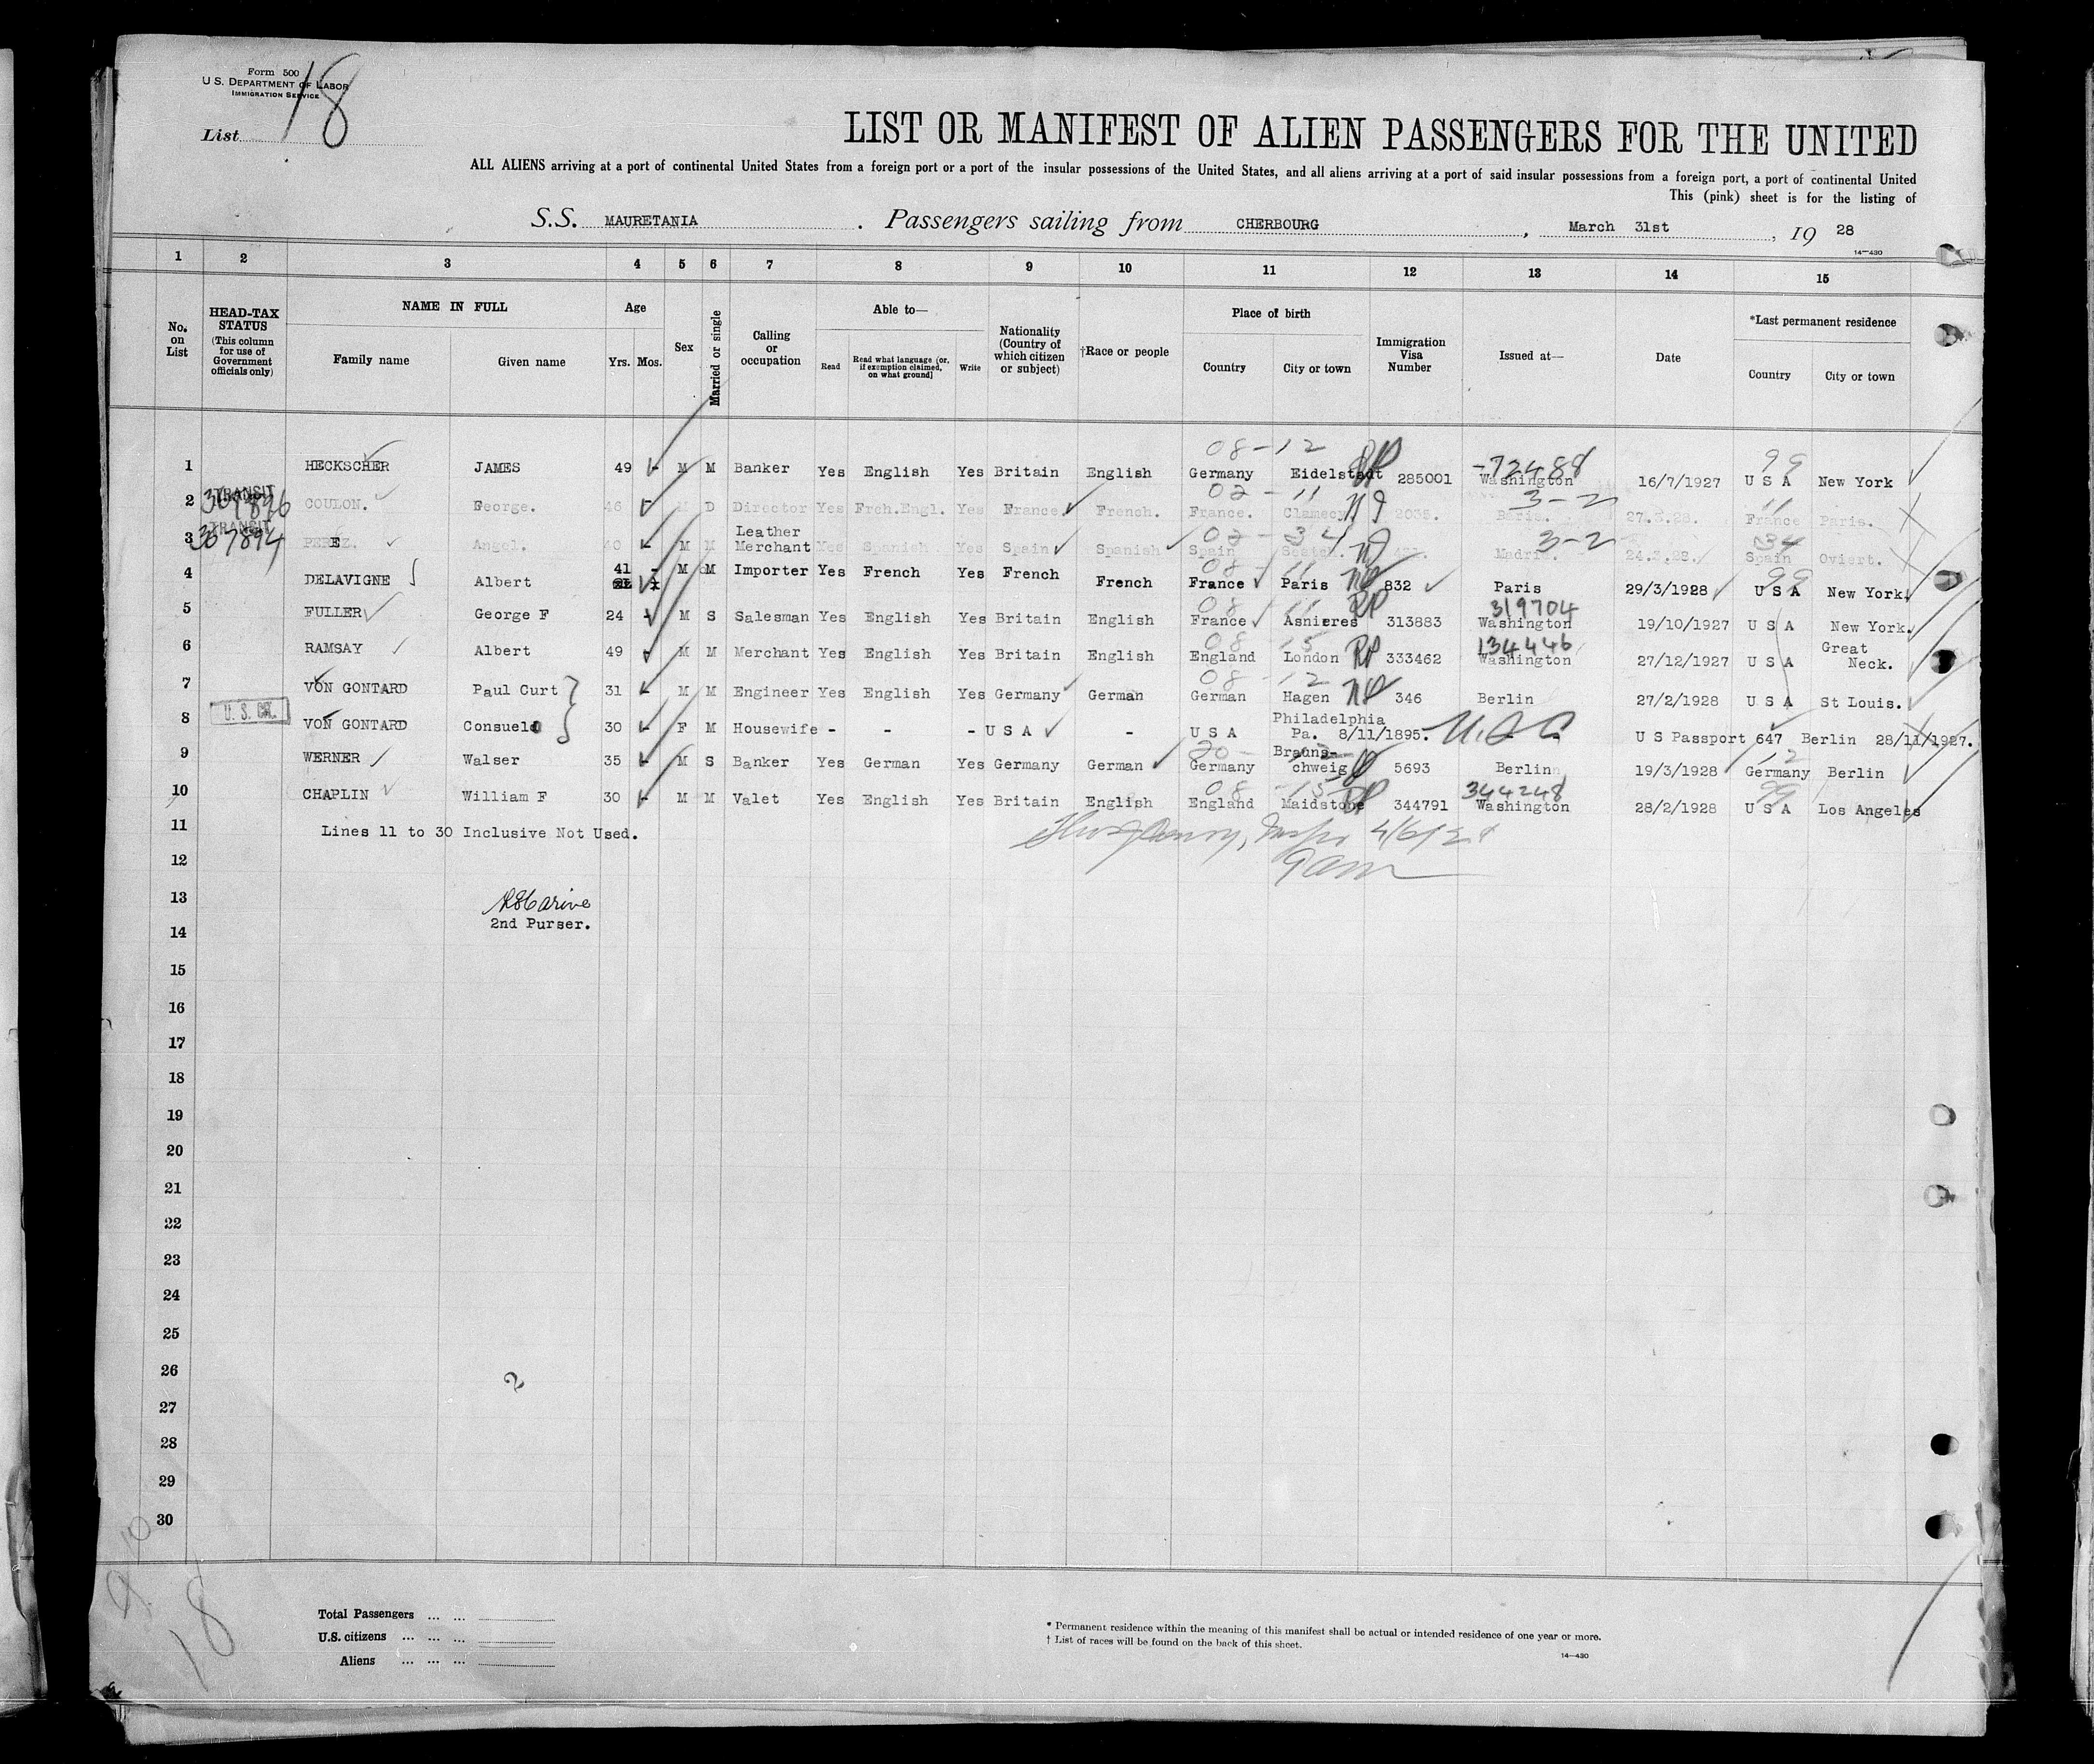 Form 500
U. S. DEPARTMENT OF LABOR
IMMIGRATION SERVICE
List 18
LIST OR MANIFEST OF ALIEN PASSENGERS FOR THE UNITED
ALL ALIENS arriving at a port of continental United States from a foreign port or a port of the insular possessions of the United States, and all aliens arriving at a port of said insular possessions from a foreign port, a port of continental United
This (pink) sheet is for the listing of
S.S. MAURETANIA . Passengers sailing from CHERBOURG , March 31st , 19 28
14—430
1 2 3 4 5 6 7 8 9 10 11 12 13 14 15
No. on List
HEAD-TAX STATUS (This column for use of Government officials only)
NAME IN FULL
Family name Given name
Age
Yrs. Mos.
Sex
Married or single
Calling or occupation
Able to—
Read Read what language [or, if exemption claimed, on what ground] Write
Nationality (Country of which citizen or subject)
†Race or people
Place of birth
Country City or town
Immigration Visa Number
Issued at—
Date
*Last permanent residence
Country City or town
08-12 99
1 HECKSCHER JAMES 49 - M M Banker Yes English Yes Britain English Germany Eidelstadt RP 285001 -72488 Washington 16/7/1927 U S A New York
TRANSIT 02 - 11 3-2 11
2 COULON. George. 46 - M D Director Yes Frch.Engl. Yes France. French. France. Clamecy 2035. 27.3.28. France Paris.
TRANSIT 307894 02 - 34 3-2 34
3 PEREZ. Angel. 40 - M M Leather Merchant Yes Spanish Yes Spain Spanish Spain Madrid. 24.3.28. Spain Oviert.
08 - 11 99
4 DELAVIGNE Albert 41 - M M Importer Yes French Yes French French France Paris 832 Paris 29/3/1928 U S A New York.
08 11 319704
5 FULLER George F 24 - M S Salesman Yes English Yes Britain English France Asnieres RP 313883 Washington 19/10/1927 U S A New York.
08 15 134446
6 RAMSAY Albert 49 - M M Merchant Yes English Yes Britain English England London RP 333462 Washington 27/12/1927 U S A Great Neck.
08 - 12
7 VON GONTARD Paul Curt 31 - M M Engineer Yes English Yes Germany German German Hagen 346 Berlin 27/2/1928 U S A St Louis.
U. S. CIT.
8 VON GONTARD Consuelo 30 - F M Housewife - - - U S A - U S A Philadelphia Pa. 8/11/1895. U.S.C. U S Passport 647 Berlin 28/11/1927.
20 - 12 12
9 WERNER Walser 35 - M S Banker Yes German Yes Germany German Germany Brauns- chweig 5693 Berlin 19/3/1928 Germany Berlin
08 - 15 344248 99
10 CHAPLIN William F 30 - M M Valet Yes English Yes Britain English England Maidstone RP 344791 Washington 28/2/1928 U S A Los Angeles
11 Lines 11 to 30 Inclusive Not Used.
12
13
2nd Purser.
14
15
16
17
18
19
20
21
22
23
24
25
26
2
27
28
29
30
10
18
Total Passengers ... ...
U.S. citizens ... ... ...
Aliens ... ... ...
* Permanent residence within the meaning of this manifest shall be actual or intended residence of one year or more.
† List of races will be found on the back of this sheet.
14—430